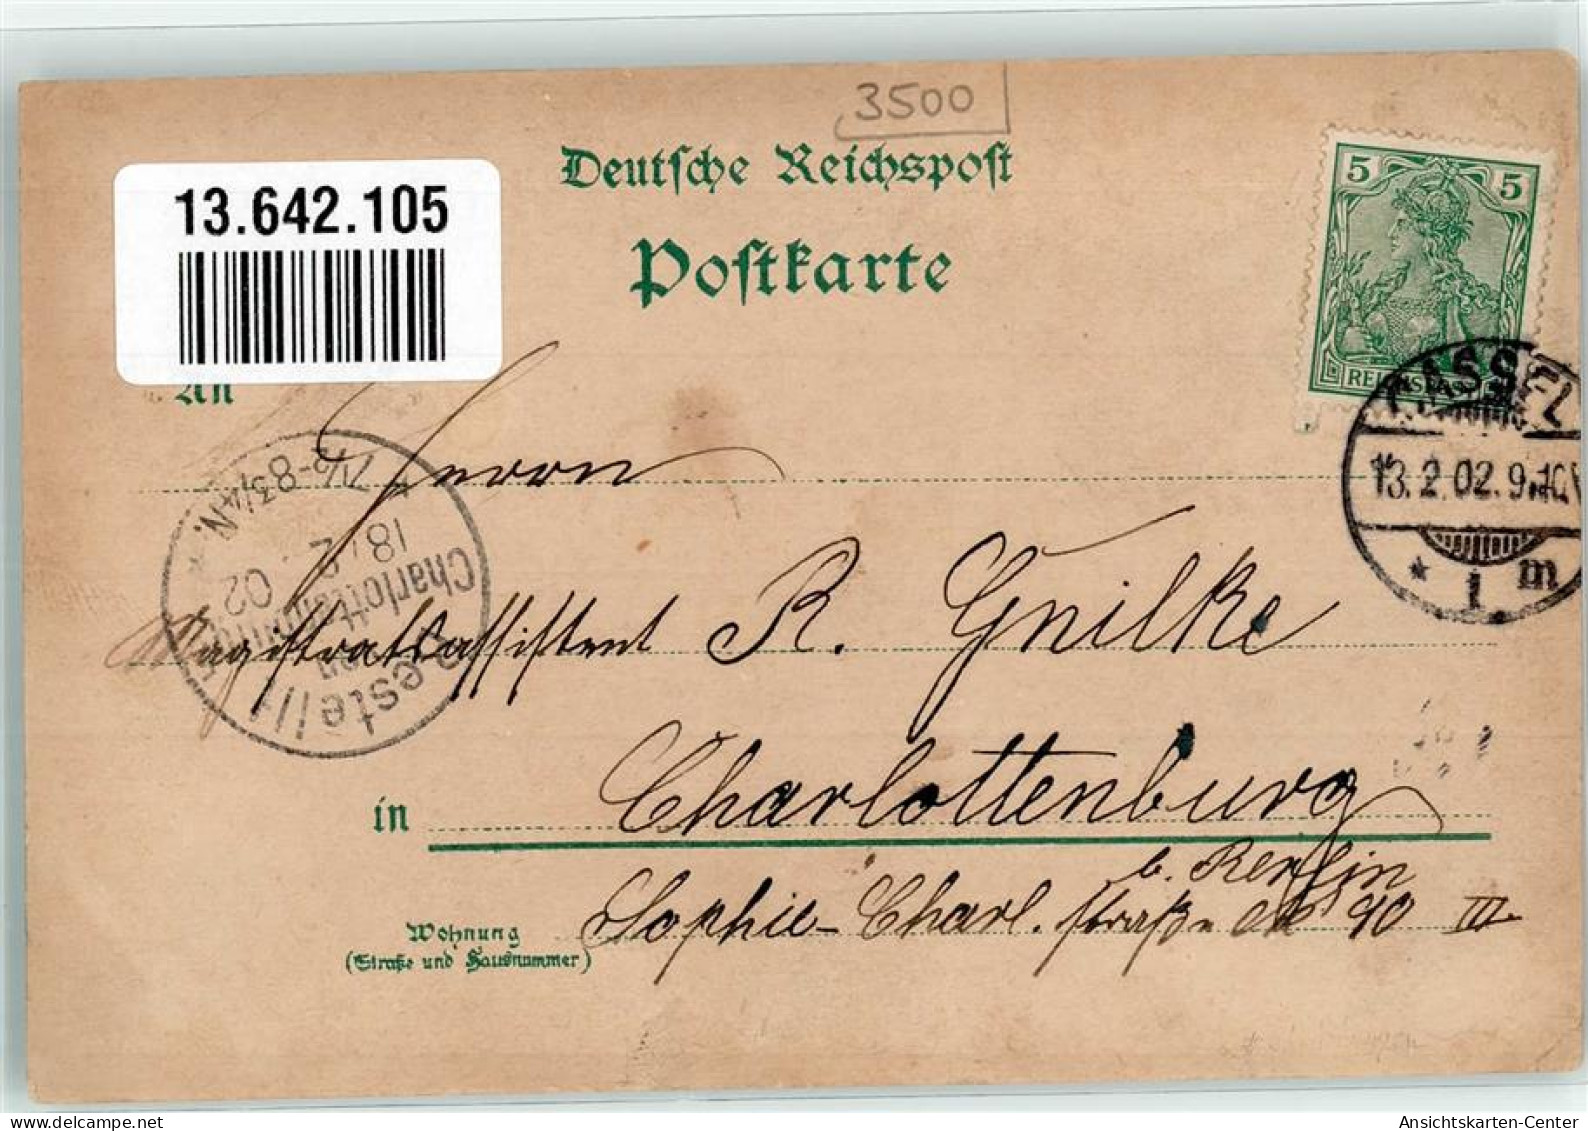 3500
Deutsche Reichspost
Postkarte
13.642.105
5 5
REICHSPOST
CASSEL
13.2.02.9-10V
* 1 m
An
Herrn
7½-8¾N.
18/2
02
Charlottenburg
Bestellt
Magistratsassistent R. Gnilke
in Charlottenburg
b. Berlin
Wohnung
(Straße und Hausnummer)
Sophie-Charl. straße 90 III
delcampe.net
Ansichtskarten-Center